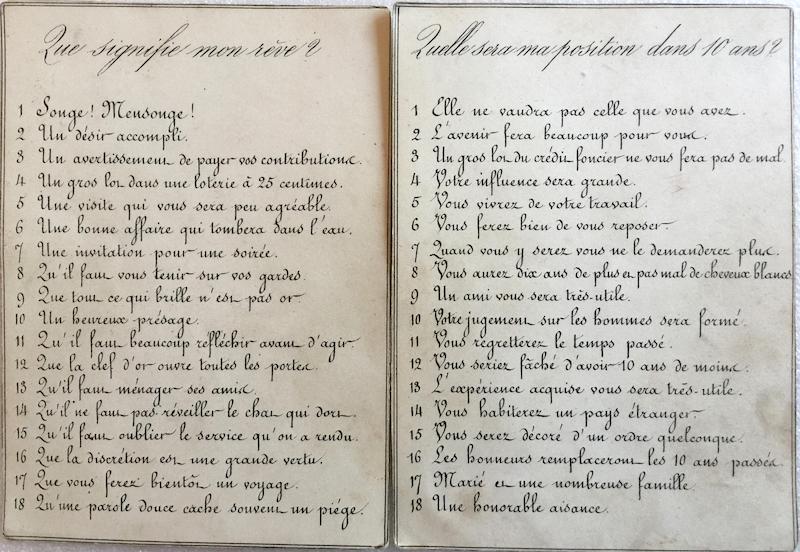 Que signifie mon rêve ?
1 Songe ! Mensonge !
2 Un désir accompli.
3 Un avertissement de payer vos contributions.
4 Un gros lot dans une loterie à 25 centimes.
5 Une visite qui vous sera peu agréable.
6 Une bonne affaire qui tombera dans l'eau.
7 Une invitation pour une soirée.
8 Qu'il faut vous tenir sur vos gardes.
9 Que tout ce qui brille n'est pas or
10 Un heureux présage.
11 Qu'il faut beaucoup réfléchir avant d'agir.
12 Que la clef d'or ouvre toutes les portes.
13 Qu'il faut ménager ses amis.
14 Qu'il ne faut pas réveiller le chat qui dort.
15 Qu'il faut oublier le service qu'on a rendu.
16 Que la discrétion est une grande vertu.
17 Que vous ferez bientôt un voyage.
18 Qu'une parole douce cache souvent un piége.
Quelle sera ma position dans 10 ans ?
1 Elle ne vaudra pas celle que vous avez.
2 L'avenir fera beaucoup pour vous.
3 Un gros lot du crédit foncier ne vous fera pas de mal
4 Votre influence sera grande.
5 Vous vivrez de votre travail.
6 Vous ferez bien de vous reposer.
7 Quand vous y serez vous ne le demanderez plus.
8 Vous aurez dix ans de plus et pas mal de cheveux blancs
9 Un ami vous sera très-utile.
10 Votre jugement sur les hommes sera formé.
11 Vous regretterez le temps passé.
12 Vous seriez fâché d'avoir 10 ans de moins.
13 L'expérience acquise vous sera très-utile.
14 Vous habiterez un pays étranger.
15 Vous serez décoré d'un ordre quelconque.
16 Les honneurs remplaceront les 10 ans passés.
17 Marié et une nombreuse famille.
18 Une honorable aisance.